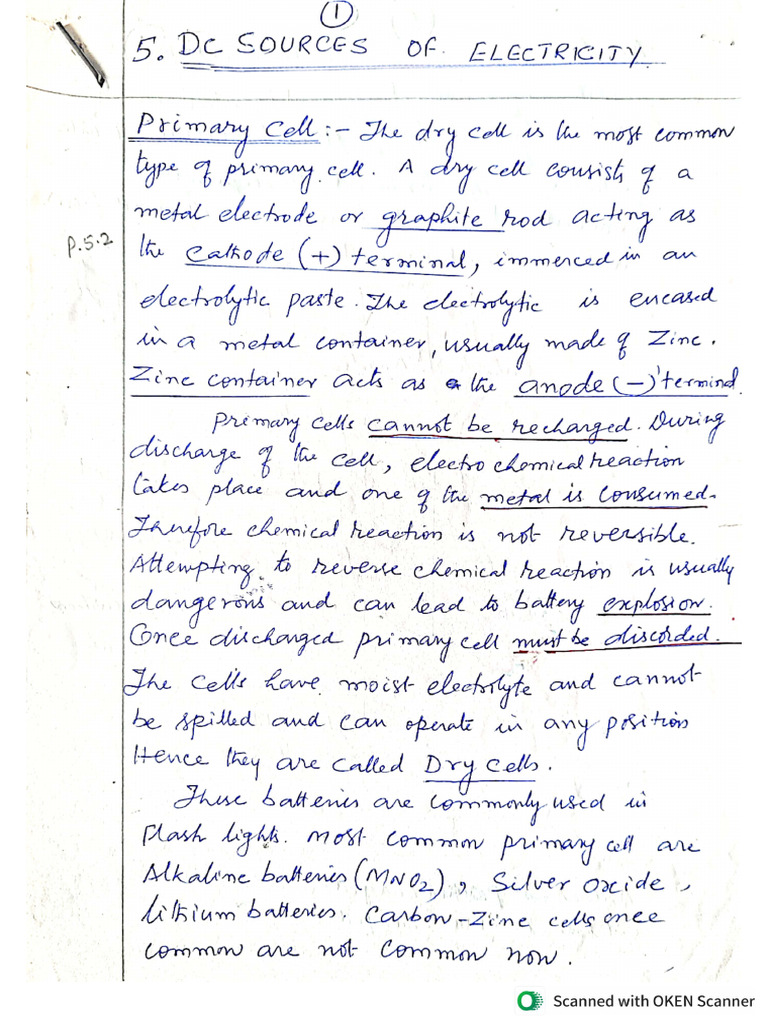 1
5. DC SOURCES OF ELECTRICITY
Primary Cell :- The dry cell is the most common
type of primary cell. A dry cell consists of a
metal electrode or graphite rod acting as
P.5.2
the cathode (+) terminal, immerced in an
electrolytic paste. The electrolytic is encased
in a metal container, usually made of Zinc.
Zinc container acts as the anode (-) termind.
Primary cells cannot be recharged. During
discharge of the cell, electro chemical reaction
takes place and one of the metal is consumed.
Therefore chemical reaction is not reversible.
Attempting to reverse chemical reaction is usually
dangerous and can lead to battery explosion.
Once discharged primary cell must be discorded.
The cells have moist electrolyte and cannot
be spilled and can operate in any position
Hence they are called Dry cells.
These batteries are commonly used in
Flash lights. Most common primary cell are
Alkaline batteries (MNO2), Silver oxide,
lithium batteries. Carbon-Zinc cells once
common are not common now.
Scanned with OKEN Scanner